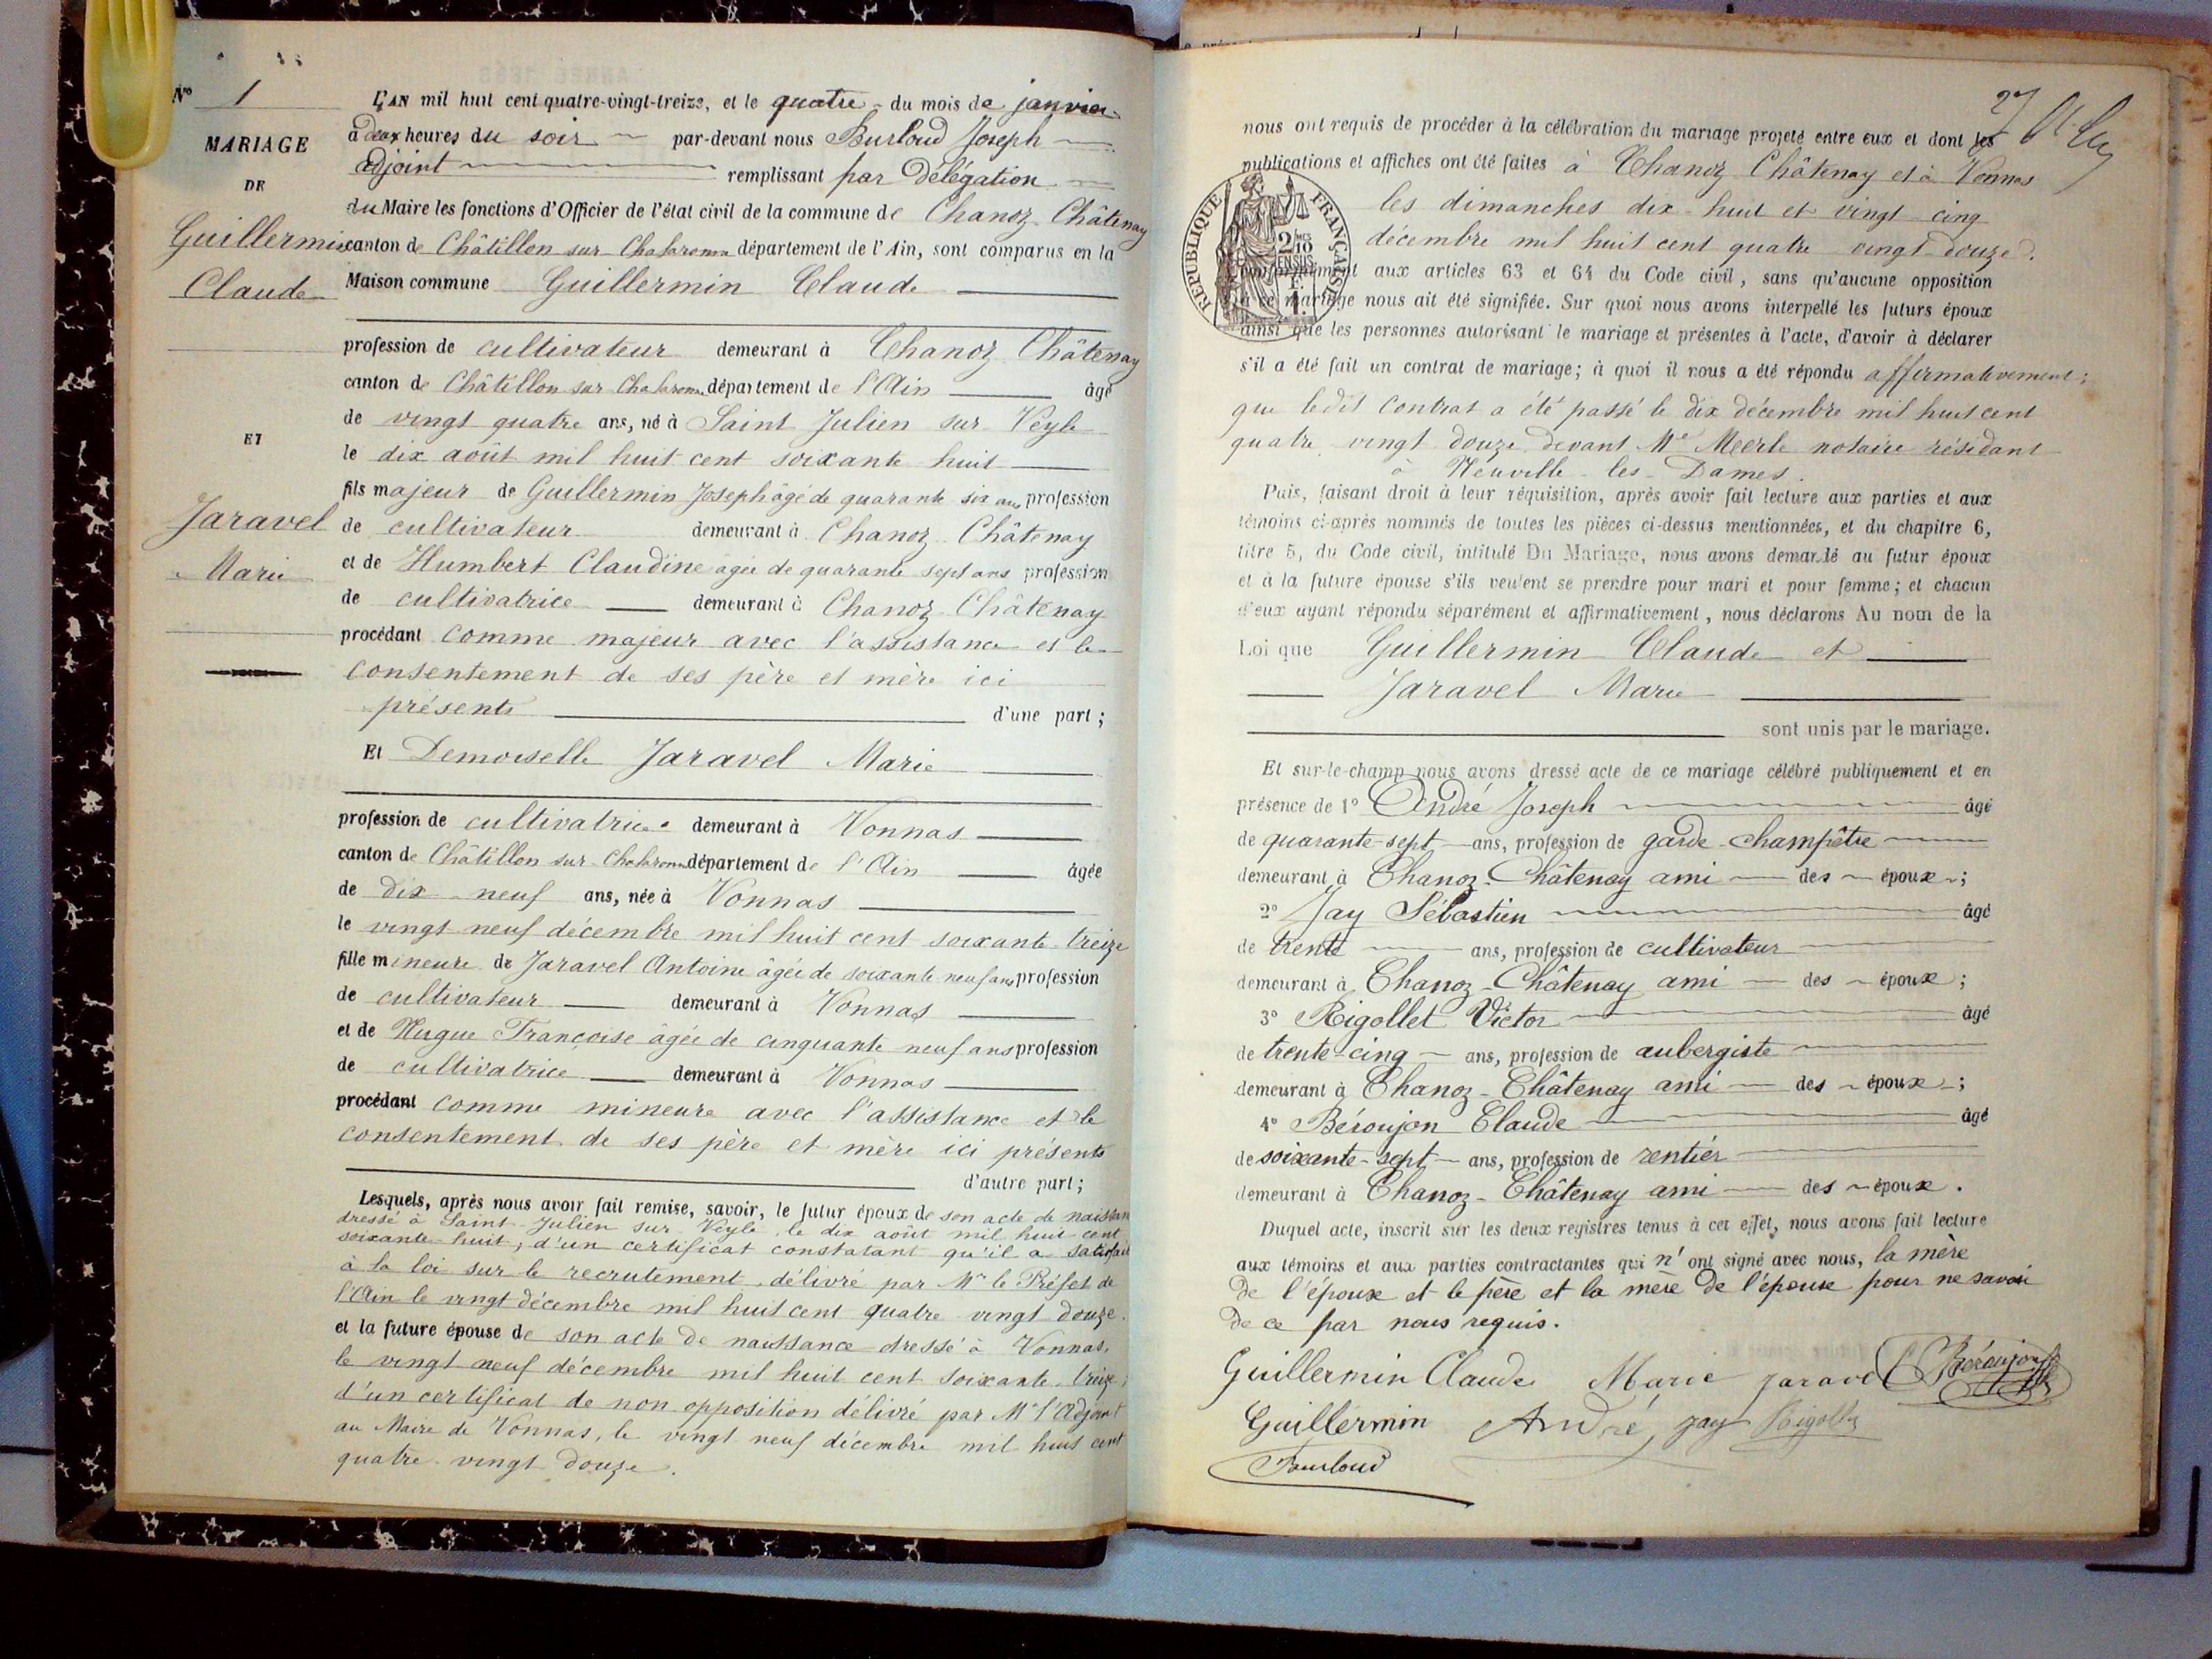 N° 1
MARIAGE
DE
Guillermin
Claude
ET
Jaravel
Marie
L'AN mil huit cent quatre-vingt-treize, et le quatre du mois de janvier
à deux heures du soir par-devant nous Burloud Joseph
adjoint remplissant par Délégation
du Maire les fonctions d'Officier de l'état civil de la commune de Chanoz-Châtenay
canton de Châtillon sur Chalaronne département de l'Ain, sont comparus en la
Maison commune Guillermin Claude
profession de cultivateur demeurant à Chanoz Châtenay
canton de Châtillon sur Chalaronne département de l'Ain âgé
de vingt quatre ans, né à Saint Julien sur Veyle
le dix août mil huit cent soixante huit
fils majeur de Guillermin Joseph âgé de quarante six ans profession
de cultivateur demeurant à Chanoz Châtenay
et de Humbert Claudine âgée de quarante sept ans profession
de cultivatrice demeurant à Chanoz-Châtenay
procédant comme majeur avec l'assistance et le
consentement de ses père et mère ici
présents d'une part ;
Et Demoiselle Jaravel Marie
profession de cultivatrice demeurant à Vonnas
canton de Châtillon sur Chalaronne département de l'Ain âgée
de dix-neuf ans, née à Vonnas
le vingt neuf décembre mil huit cent soixante-treize
fille mineure de Jaravel Antoine âgée de soixante neuf ans profession
de cultivateur demeurant à Vonnas
et de Hugue Françoise âgée de cinquante neuf ans profession
de cultivatrice demeurant à Vonnas
procédant comme mineure avec l'assistance et le
consentement de ses père et mère ici présents
d'autre part ;
Lesquels, après nous avoir fait remise, savoir, le futur époux de son acte de naissan
dressé à Saint-Julien sur Veyle le dix août mil huit cent
soixante-huit, d'un certificat constatant qu'il a satisfait
à la loi sur le recrutement, délivré par Mr le Préfet de
l'Ain le vingt décembre mil huit cent quatre vingt douze.
et la future épouse de son acte de naissance dressé à Vonnas,
le vingt neuf décembre mil huit cent soixante-treize,
d'un certificat de non opposition délivré par Mr l'Adjoint
au Maire de Vonnas, le vingt neuf décembre mil huit cent
quatre-vingt douze.
27
nous ont requis de procéder à la célébration du mariage projeté entre eux et dont les
publications et affiches ont été faites à Chanoz Châtenay et à Vonnas
les dimanches dix-huit et vingt-cinq
décembre mil huit cent quatre vingt-douze.
RÉPUBLIQUE FRANÇAISE
2/10
EN SUS
conformément aux articles 63 et 64 du Code civil, sans qu'aucune opposition
à ce mariage nous ait été signifiée. Sur quoi nous avons interpellé les futurs époux
ainsi que les personnes autorisant le mariage et présentes à l'acte, d'avoir à déclarer
s'il a été fait un contrat de mariage; à quoi il nous a été répondu affirmativement;
que ledit contrat a été passé le dix décembre mil huit cent
quatre vingt douze devant Me Meerle notaire résidant
à Neuville-les-Dames.
Puis, faisant droit à leur réquisition, après avoir fait lecture aux parties et aux
témoins ci-après nommés de toutes les pièces ci-dessus mentionnées, et du chapitre 6,
titre 5, du Code civil, intitulé Du Mariage, nous avons demandé au futur époux
et à la future épouse s'ils veulent se prendre pour mari et pour femme; et chacun
d'eux ayant répondu séparément et affirmativement, nous déclarons Au nom de la
Loi que Guillermin Claude et
Jaravel Marie
sont unis par le mariage.
Et sur-le-champ nous avons dressé acte de ce mariage célébré publiquement et en
présence de 1° André Joseph âgé
de quarante-sept ans, profession de garde-champêtre
demeurant à Chanoz-Châtenay ami des époux ;
2° Jay Sébastien âgé
de trente ans, profession de cultivateur
demeurant à Chanoz-Châtenay ami des époux ;
3° Rigollet Victor âgé
de trente-cinq ans, profession de aubergiste
demeurant à Chanoz-Châtenay ami des époux ;
4° Béroujon Claude âgé
de soixante-sept ans, profession de rentier
demeurant à Chanoz-Châtenay ami des époux.
Duquel acte, inscrit sur les deux registres tenus à cet effet, nous avons fait lecture
aux témoins et aux parties contractantes qui n'ont signé avec nous, la mère
de l'époux et le père et la mère de l'épouse pour ne savoir
de ce par nous requis.
Guillermin Claude Marie Jaravel Béroujon
Guillermin André Jay Rigollet
Burloud